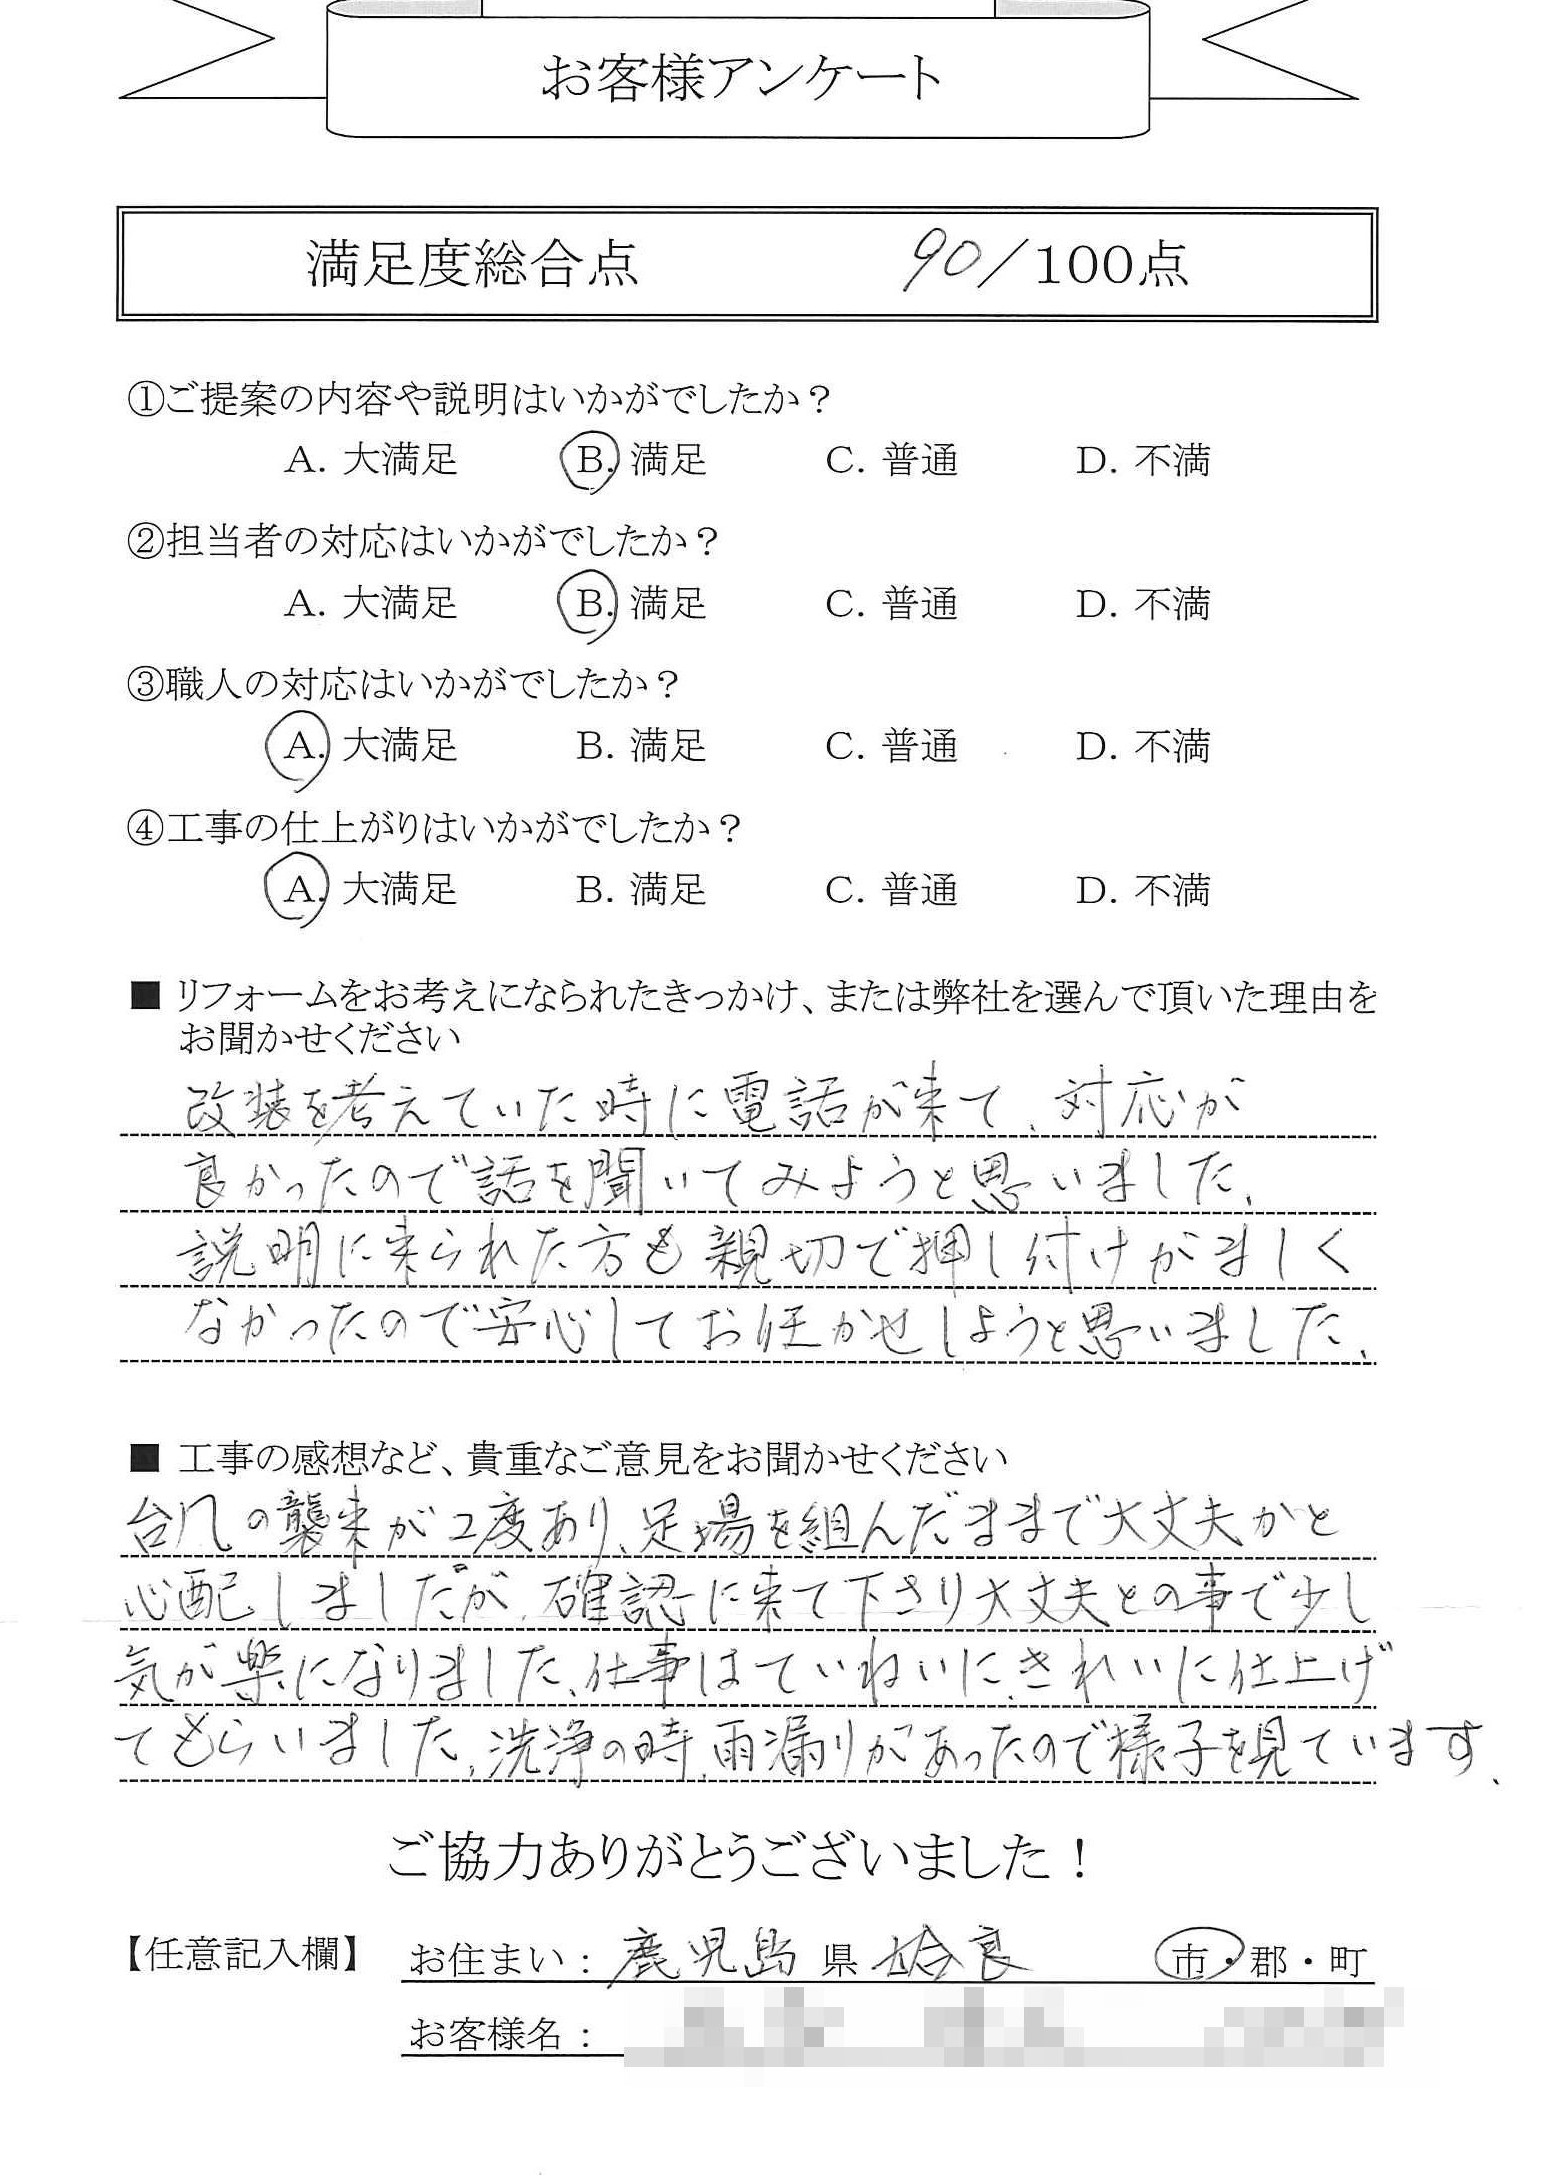 お客様アンケート
満足度総合点 90/100点
①ご提案の内容や説明はいかがでしたか？
A. 大満足 B. 満足 C. 普通 D. 不満
②担当者の対応はいかがでしたか？
A. 大満足 B. 満足 C. 普通 D. 不満
③職人の対応はいかがでしたか？
A. 大満足 B. 満足 C. 普通 D. 不満
④工事の仕上がりはいかがでしたか？
A. 大満足 B. 満足 C. 普通 D. 不満
■ リフォームをお考えになられたきっかけ、または弊社を選んで頂いた理由を
お聞かせください
改装を考えていた時に電話が来て、対応が
良かったので話を聞いてみようと思いました、
説明に来られた方も親切で押し付けがましく
なかったので安心してお任かせしようと思いました、
■ 工事の感想など、貴重なご意見をお聞かせください
台風の襲来が2度あり、足場を組んだままで大丈夫かと
心配しましたが、確認に来て下さり大丈夫との事で少し
気が楽になりました、仕事はていねいに、きれいに仕上げ
てもらいました、洗浄の時、雨漏りがあったので様子を見ています、
ご協力ありがとうございました！
【任意記入欄】 お住まい： 鹿児島 県 姶良 市・郡・町
お客様名：